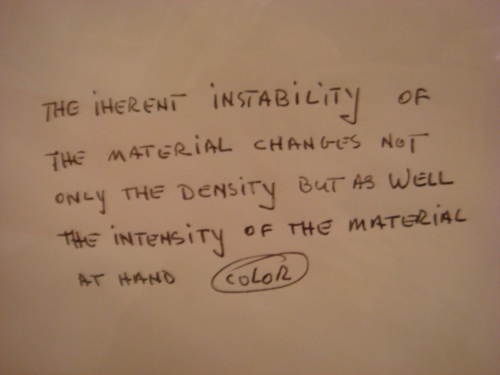 THE iHERENT iNSTABiLiTy OF
THE MATERiAL CHANGES NOT
ONLy THE DENSiTy BUT AS WELL
THE iNTENSiTy OF THE MATERiAL
AT HAND COLOR